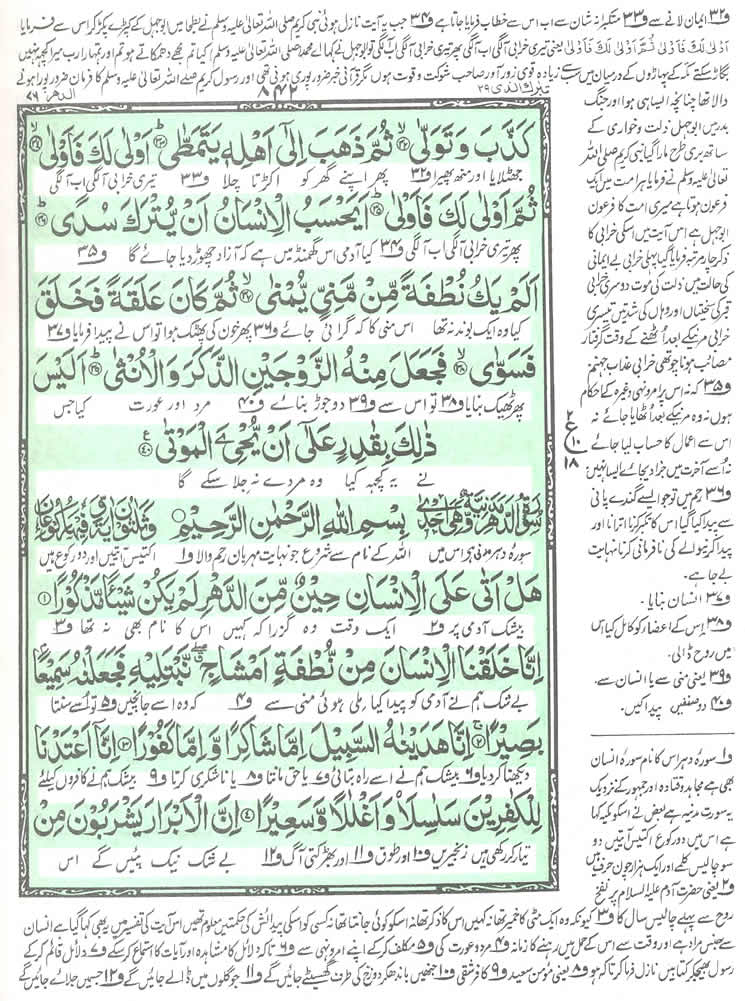 و۳۲ ایمان لانے سے و۳۳ متکبرانہ شان سے اب اس سے خطاب فرمایا جاتا ہے و۳۴ جب یہ آیت نازل ہوئی نبی کریم صلی اللہ تعالیٰ علیہ وسلم نے بطحا میں ابوجہل کے کپڑے پکڑ کر اس سے فرمایا
اَوْلٰى لَكَ فَاَوْلٰى ثُمَّ اَوْلٰى لَكَ فَاَوْلٰى یعنی تیری خرابی آ لگی اب آ لگی پھر تیری خرابی آ لگی اب آ لگی تو ابوجہل نے کہا اے محمد صلی اللہ تعالیٰ علیہ وسلم کیا تم مجھے دھمکاتے ہو تم اور تمہارا رب میرا کچھ نہیں
بگاڑ سکتے مکہ کے پہاڑوں کے درمیان میں سب سے زیادہ قوی زور آور صاحب شوکت و قوت ہوں مگر قرآنی خبر ضرور پوری ہونی تھی اور رسول کریم صلی اللہ تعالیٰ علیہ وسلم کا فرمان ضرور پورا ہونے
تبرک الذی ۲۹
۸۴۲
الدھر ۷۶
كَذَّبَ وَتَوَلّٰىۙ۳۲ ثُمَّ ذَهَبَ اِلٰۤى اَهْلِهٖ يَتَمَطّٰىؕ۳۳ اَوْلٰى لَكَ فَاَوْلٰىۙ۳۴
جھٹلایا اور منھ پھیرا و۳۲ پھر اپنے گھر کو اکڑتا چلا و۳۳ تیری خرابی آ لگی اب آ لگی
ثُمَّ اَوْلٰى لَكَ فَاَوْلٰىؕ۳۵ اَيَحْسَبُ الْاِنْسَانُ اَنْ يُّتْرَكَ سُدًىؕ۳۶
پھر تیری خرابی آ لگی اب آ لگی و۳۴ کیا آدمی اس گھمنڈ میں ہے کہ آزاد چھوڑ دیا جائے گا و۳۵
اَلَمْ يَكُ نُطْفَةً مِّنْ مَّنِيٍّ يُّمْنٰىۙ۳۷ ثُمَّ كَانَ عَلَقَةً فَخَلَقَ
کیا وہ ایک بوند نہ تھا اس منی کا کہ گرائی جائے و۳۶ پھر خون کی پھٹک ہوا تو اس نے پیدا فرمایا و۳۷
فَسَوّٰىۙ۳۸ فَجَعَلَ مِنْهُ الزَّوْجَيْنِ الذَّكَرَ وَالْاُنْثٰىؕ۳۹ اَلَيْسَ
پھر ٹھیک بنایا و۳۸ تو اس سے و۳۹ دو جوڑ بنائے و۴۰ مرد اور عورت کیا جس
ذٰلِكَ بِقٰدِرٍ عَلٰۤى اَنْ يُّحْيِۦَ الْمَوْتٰى۴۰
نے یہ کچھ کیا وہ مردے نہ جلا سکے گا
سُوْرَةُ الدَّهْرِ مَدَنِيَّةٌ وَّهِيَ اِحْدٰى بِسْمِ اللّٰهِ الرَّحْمٰنِ الرَّحِيْمِ وَثَلٰثُوْنَ اٰيَةً وَّفِيْهَا رُكُوْعَانِ
سورۂ دہر مدنی ہے اس میں اللہ کے نام سے شروع جو نہایت مہربان رحم والا و۱ اکتیس آیتیں اور دو رکوع ہیں
هَلْ اَتٰى عَلَى الْاِنْسَانِ حِيْنٌ مِّنَ الدَّهْرِ لَمْ يَكُنْ شَيْـًٔا مَّذْكُوْرًا۱
بیشک آدمی پر و۲ ایک وقت وہ گزرا کہ کہیں اس کا نام بھی نہ تھا و۳
اِنَّا خَلَقْنَا الْاِنْسَانَ مِنْ نُّطْفَةٍ اَمْشَاجٍ ۖ نَّبْتَلِيْهِ فَجَعَلْنٰهُ سَمِيْعًۢا
بے شک ہم نے آدمی کو پیدا کیا ملی ہوئی منی سے و۴ کہ وہ اسے جانچیں و۵ تو اسے سنتا
بَصِيْرًا۲ اِنَّا هَدَيْنٰهُ السَّبِيْلَ اِمَّا شَاكِرًا وَّاِمَّا كَفُوْرًا۳ اِنَّاۤ اَعْتَدْنَا
دیکھتا کر دیا و۶ بیشک ہم نے اسے راہ بتائی و۷ یا حق مانتا و۸ یا ناشکری کرتا و۹ بیشک ہم نے کافروں کیلئے
لِلْكٰفِرِيْنَ سَلٰسِلَا۠ وَاَغْلٰلًا وَّسَعِيْرًا۴ اِنَّ الْاَبْرَارَ يَشْرَبُوْنَ مِنْ
تیار کر رکھی ہیں زنجیریں و۱۰ اور طوق و۱۱ اور بھڑکتی آگ و۱۲ بے شک نیک پئیں گے اس
والا تھا چنانچہ ایسا ہی ہوا اور جنگ
بدر میں ابوجہل ذلت و خواری کے
ساتھ بری طرح مارا گیا نبی کریم صلی اللہ
تعالیٰ علیہ وسلم نے فرمایا ہر امت میں ایک
فرعون ہوتا ہے میری امت کا فرعون
ابوجہل ہے اس آیت میں اسکی خرابی کا
ذکر چار مرتبہ فرمایا گیا پہلی خرابی بے ایمانی
کی حالت میں ذلت کی موت دوسری خرابی
قبر کی سختیاں اور وہاں کی شدتیں تیسری
خرابی مرنیکے بعد اٹھنے کے وقت گرفتار
مصائب ہونا چوتھی خرابی عذاب جہنم
و۳۵ کہ نہ اس پر امر و نہی وغیرہ کے احکام
ہوں نہ وہ مرنیکے بعد اٹھایا جائے نہ
اس سے اعمال کا حساب لیا جائے
نہ اسے آخرت میں جزا دیجائے ایسا نہیں
۲
ع
۱۰
۱۸
و۳۶ رحم میں تو جو ایسے گندے پانی
سے پیدا کیا گیا اس کا تکبر کرنا اترانا اور
پیدا کرنیوالے کی نافرمانی کرنا نہایت
بے جا ہے۔
و۳۷ انسان بنایا۔
و۳۸ اس کے اعضاء کو کامل کیا اس
میں روح ڈالی۔
و۳۹ یعنی منی سے یا انسان سے۔
و۴۰ دو صنفیں پیدا کیں۔
و۱ سورۂ دہر اس کا نام سورۂ انسان
بھی ہے مجاہد و قتادہ اور جمہور کے نزدیک
یہ سورت مدنیہ ہے بعض نے اسکو مکیہ کہا
ہے اس میں دو رکوع اکتیس آیتیں دو
سو چالیس کلمے اور ایک ہزار چون حرف ہیں
و۲ یعنی حضرت آدم علیہ السلام پر نفخ
روح سے پہلے چالیس سال کا و۳ کیونکہ وہ ایک مٹی کا خمیر تھا نہ کہیں اس کا ذکر تھا نہ اسکو کوئی جانتا تھا نہ کسی کو اسکی پیدائش کی حکمتیں معلوم تھیں اس آیت کی تفسیر میں یہ بھی کہا گیا ہے کہ انسان
سے جنس مراد ہے اور وقت سے اس کے حمل میں رہنے کا زمانہ و۴ مرد و عورت کی و۵ مکلف کر کے اپنے امر و نہی سے و۶ تاکہ دلائل کا مشاہدہ اور آیات کا استماع کر سکے و۷ دلائل قائم کر کے
رسول بھیج کر کتابیں نازل فرما کر تاکہ ہو و۸ یعنی مؤمن سعید و۹ کافر شقی و۱۰ جنھیں باندھ کر دوزخ کی طرف گھسیٹے جائیں گے و۱۱ جو گلوں میں ڈالے جائیں گے و۱۲ جسمیں جلائے جائیں گے